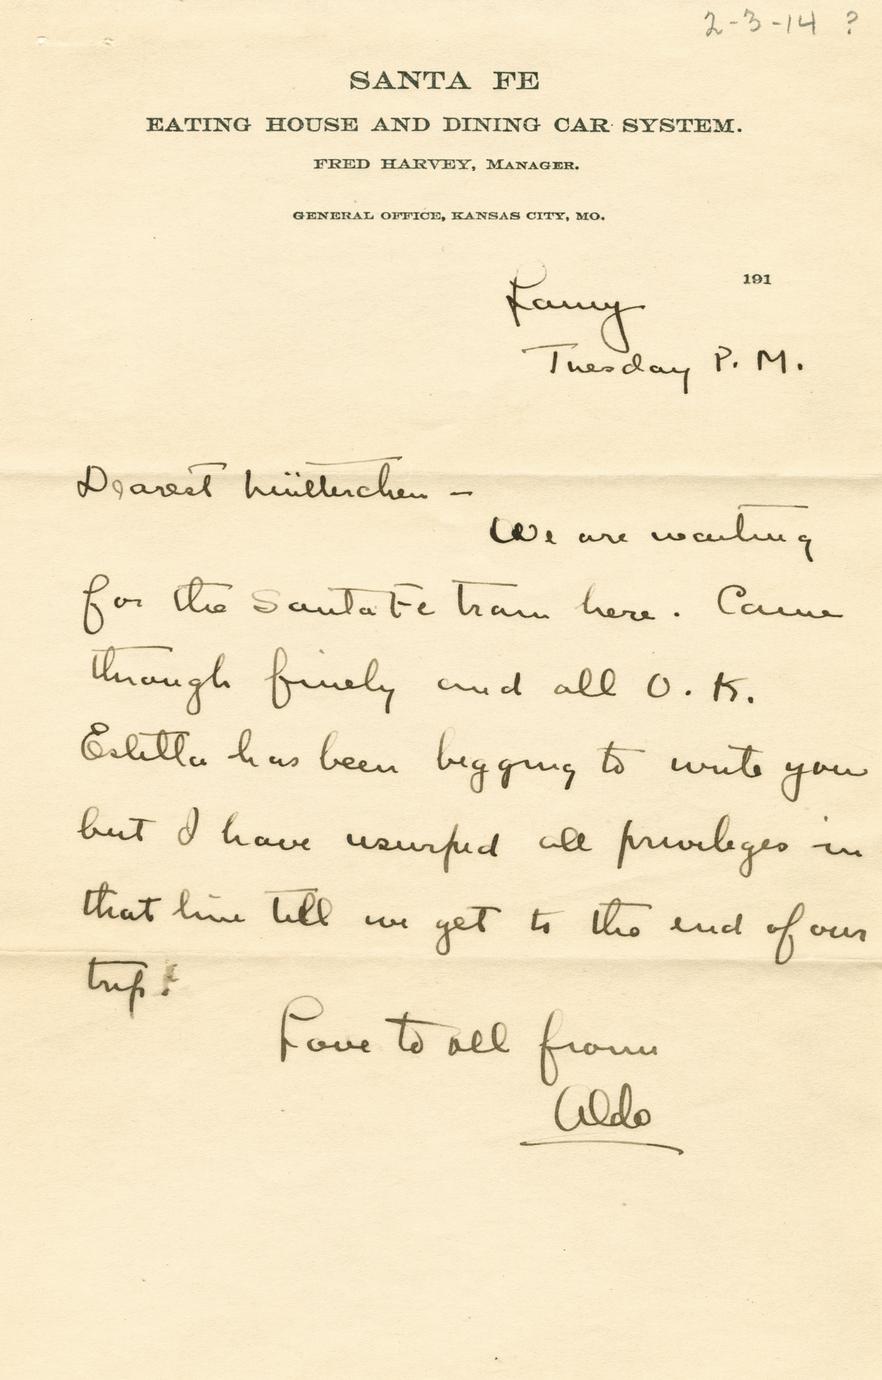 2-3-14 ?
SANTA FE
EATING HOUSE AND DINING CAR SYSTEM.
FRED HARVEY, MANAGER.
GENERAL OFFICE, KANSAS CITY, MO.
191
Lamy
Tuesday P. M.
Dearest Mütterchen —
We are waiting
for the Santa Fe train here. Came
through finely and all O. K.
Estella has been begging to write you
but I have usurped all privileges in
that line till we get to the end of our
trip.
Love to all from
Aldo